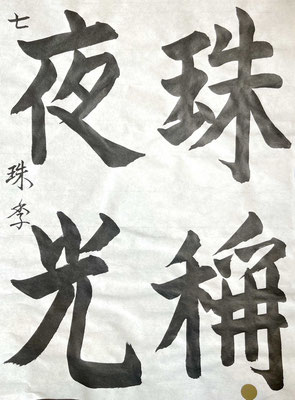 珠稱
夜光
七 珠季